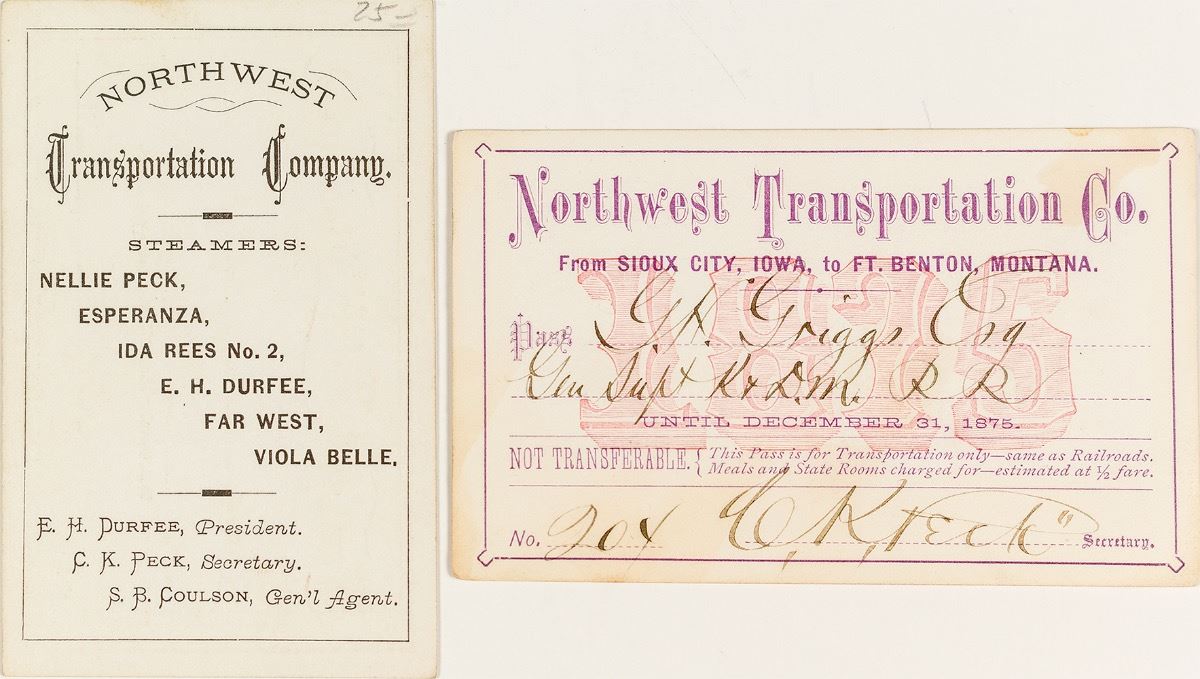 25-
NORTHWEST
Transportation Company.
STEAMERS:
NELLIE PECK,
ESPERANZA,
IDA REES No. 2,
E. H. DURFEE,
FAR WEST,
VIOLA BELLE.
E. H. DURFEE, President.
C. K. PECK, Secretary.
S. B. COULSON, Gen'l Agent.
Northwest Transportation Co.
From SIOUX CITY, IOWA, to FT. BENTON, MONTANA.
1875
Pass G. K. Griggs Esq
Gen Supt K & D.M. R R
UNTIL DECEMBER 31, 1875.
NOT TRANSFERABLE. { This Pass is for Transportation only—same as Railroads.
Meals and State Rooms charged for—estimated at ½ fare.
No. 204 C. K. Peck Secretary.